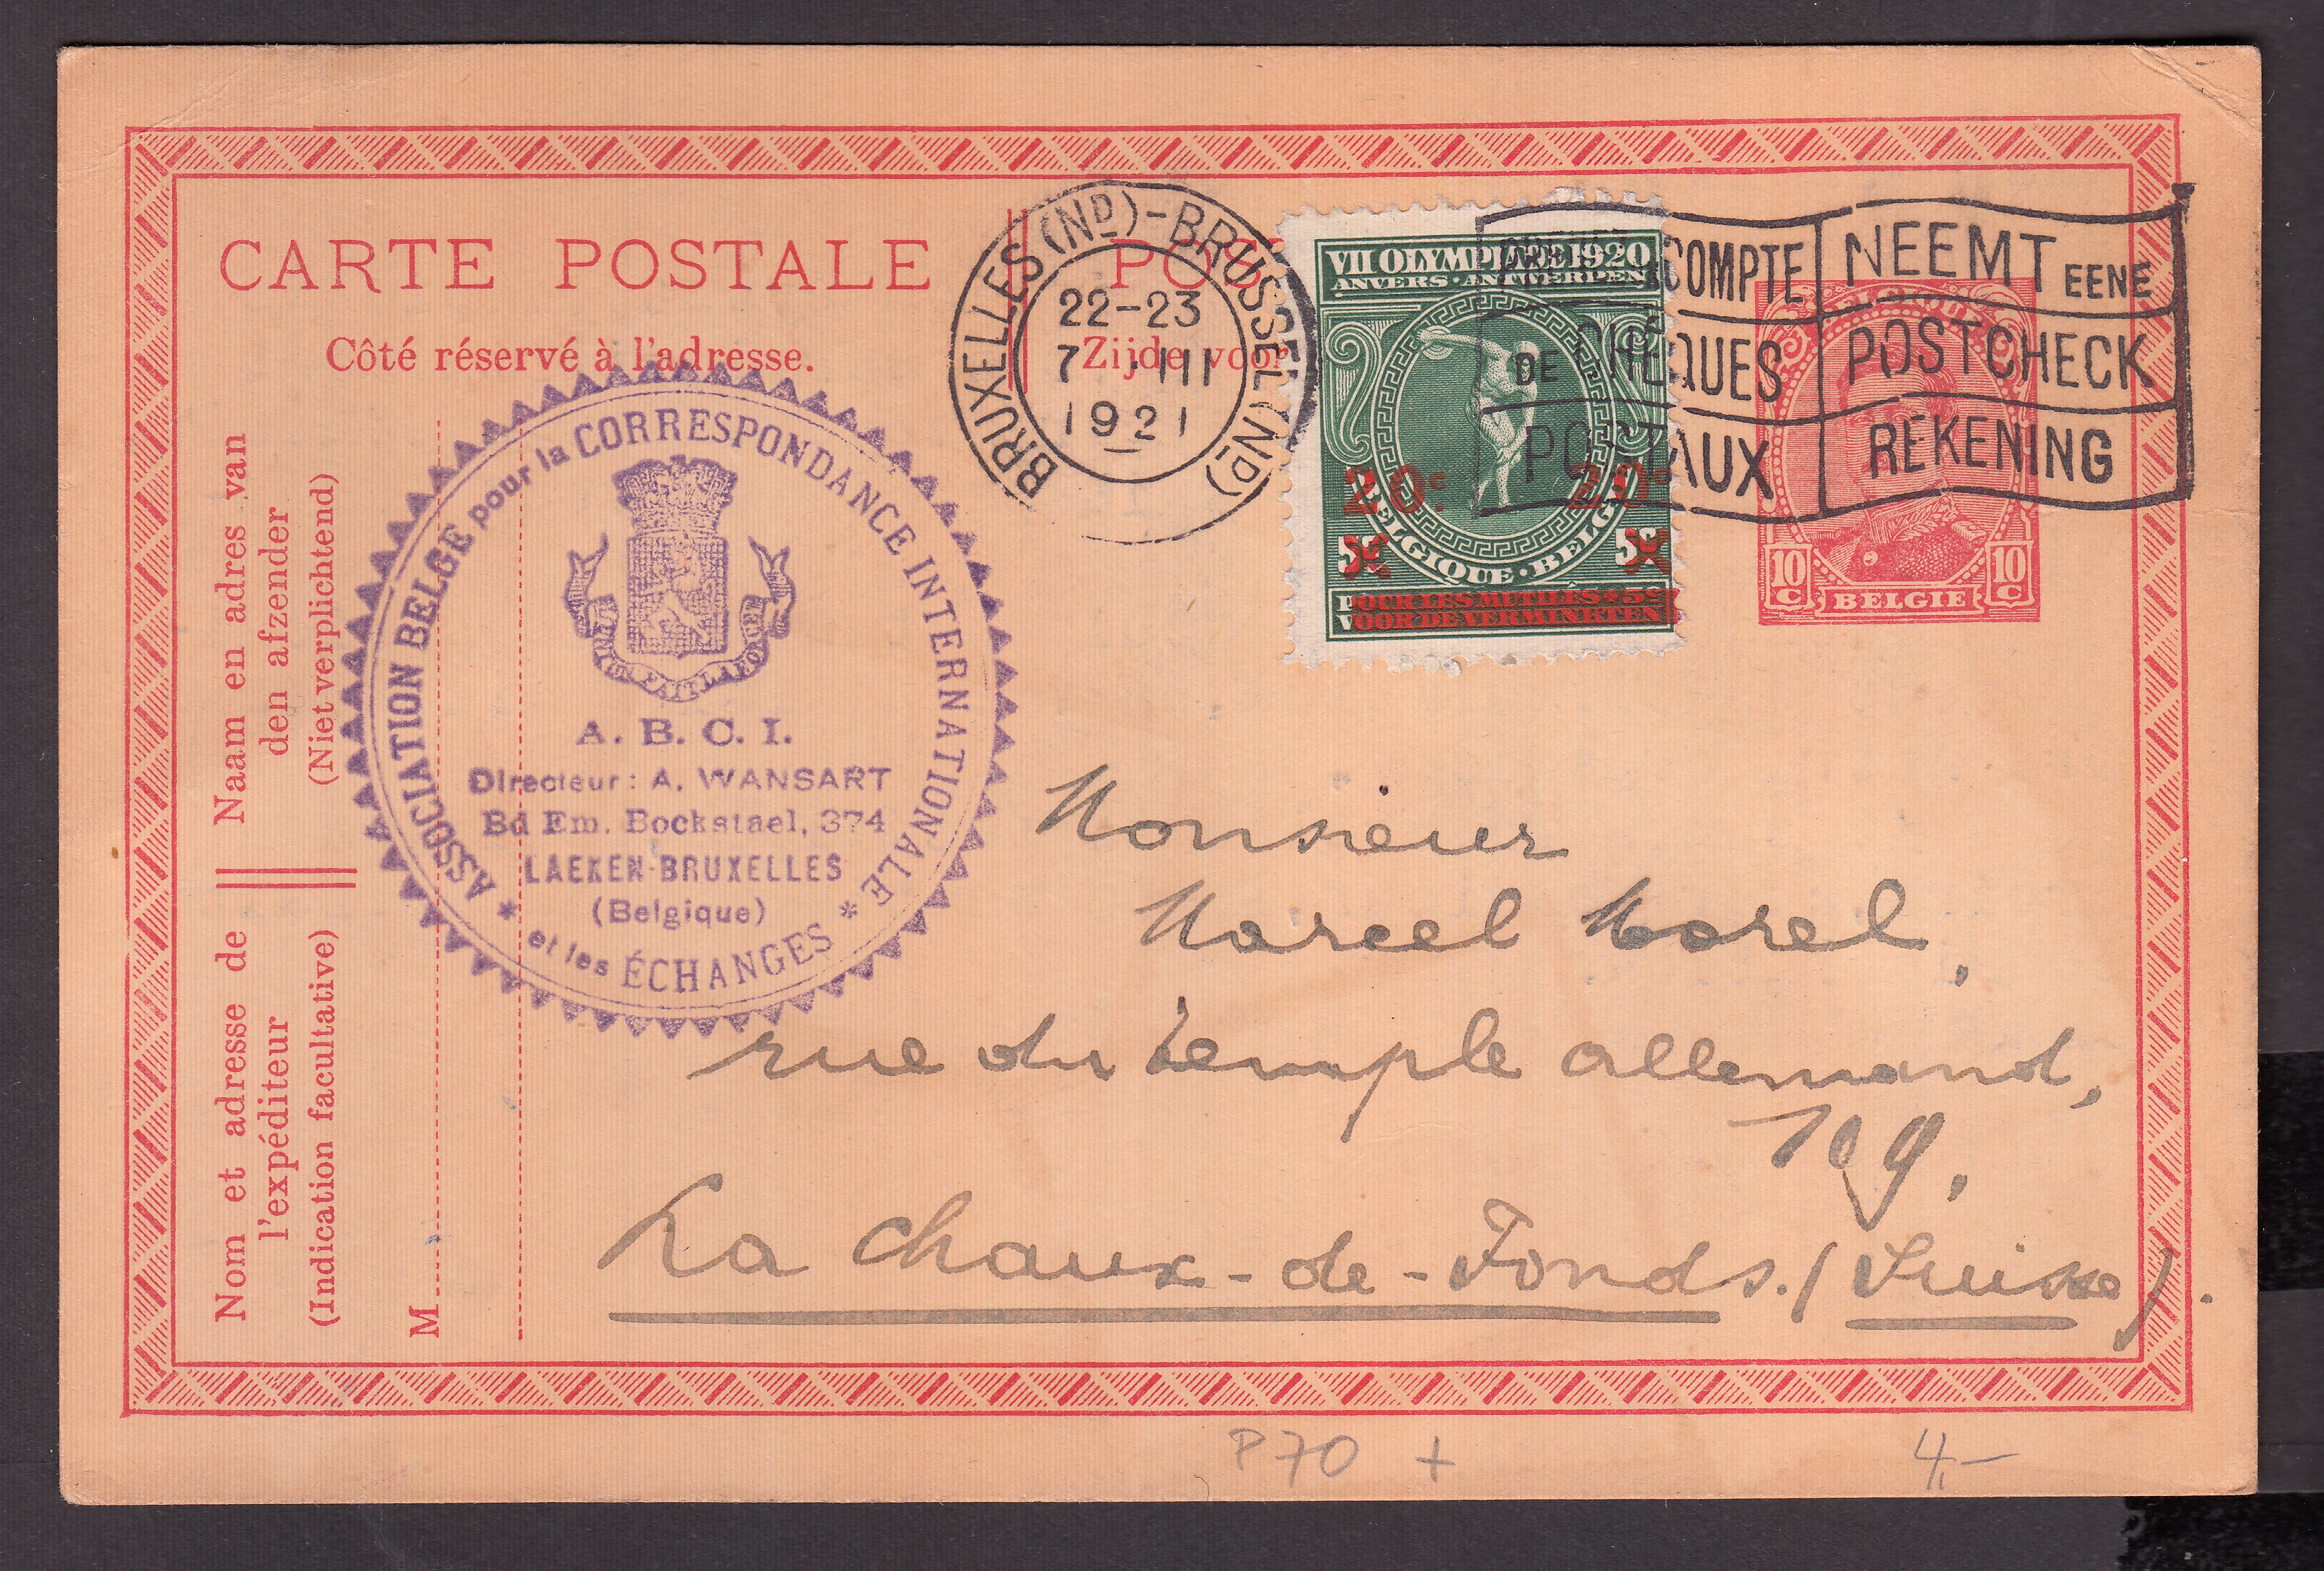 CARTE POSTALE
Côté réservé à l'adresse.
POS
Zijde voor
BRUXELLES (ND) - BRUSSEL (ND)
22-23
7 III
1921
VII OLYMPIADE 1920
ANVERS · ANTWERPEN
20c. 20c
BELGIQUE · BELGI
5c 5c
POUR LES MUTILÉS + 5c
VOOR DE VERMINKTEN
COMPTE
DE CHÈQUES
POSTAUX
NEEMT EENE
POSTCHECK
REKENING
10 C BELGIE 10 C
ASSOCIATION BELGE pour la CORRESPONDANCE INTERNATIONALE
* et les ÉCHANGES *
A. B. C. I.
Directeur : A. WANSART
Bd Em. Bockstael, 374
LAEKEN-BRUXELLES
(Belgique)
Naam en adres van
den afzender
(Niet verplichtend)
Nom et adresse de
l'expéditeur
(Indication facultative)
M
Monsieur
Marcel Morel,
rue du temple allemand,
109.
La Chaux-de-Fonds. (Suisse).
P70 +
4,-